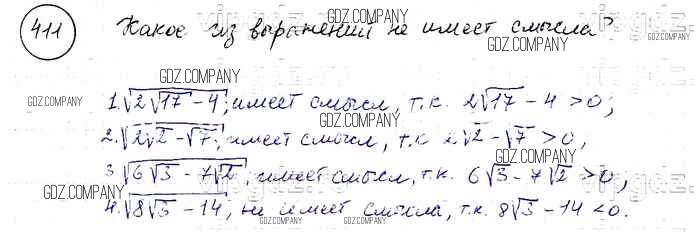 411 Какое из выражений не имеет смысла?
GDZ.COMPANY GDZ.COMPANY GDZ.COMPANY
GDZ.COMPANY
1. √(2√17 - 4); имеет смысл, т.к. 2√17 - 4 > 0;
GDZ.COMPANY GDZ.COMPANY
2. √(2√2 - √7); имеет смысл, т.к 2√2 - √7 > 0,
GDZ.COMPANY GDZ.COMPANY
3 √(6√3 - 7√2), имеет смысл, т.к. 6√3 - 7√2 > 0,
GDZ.COMPANY GDZ.COMPANY
4. √(8√3 - 14), не имеет смысла, т.к. 8√3 - 14 < 0.